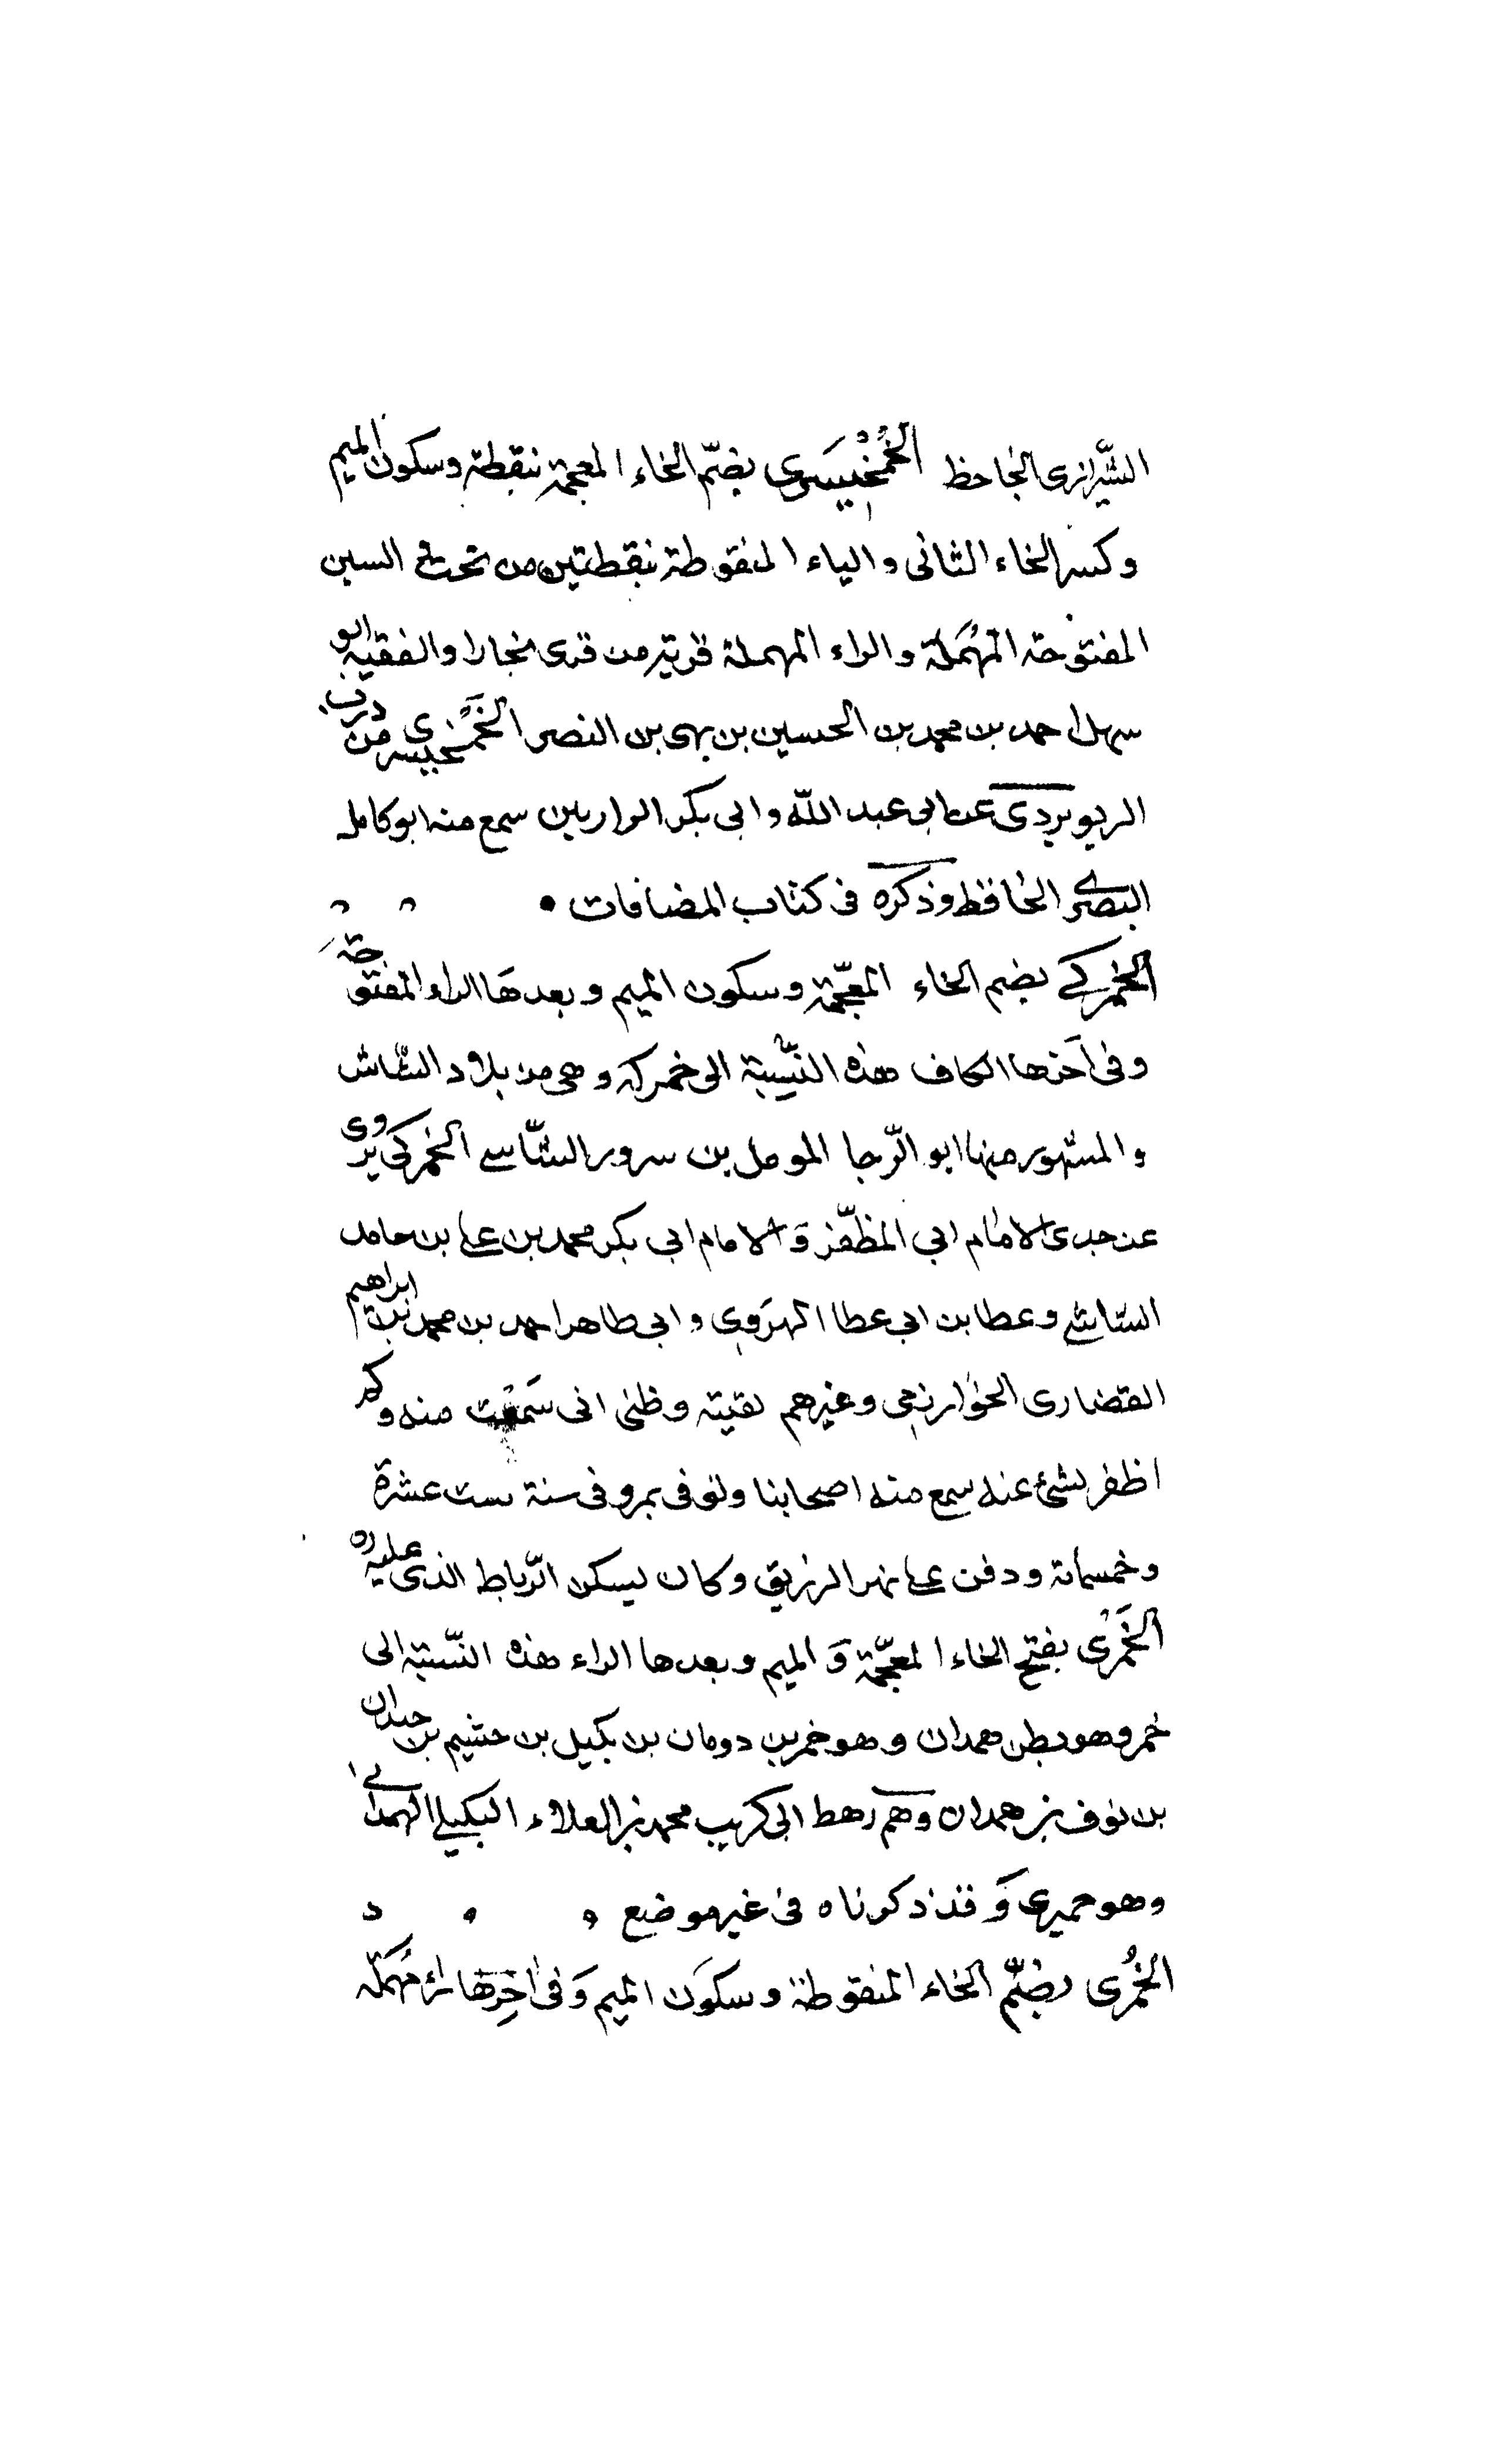 الشّيرازى الجاحظ الخُمْخيسَرى بضمّ الخاء المعجمة بنقطة وسكون الميم
وكسر الخاء الثانى والياء المنقوطة بنقطتين من تحت السين
المفتوحة المهُملَة والراء المهملة قرية من قرى بخارا والفقيه ابو
سهل احمد بن محمد بن الحسين بن بهى بن النصر الخَمخيسرى من درب
الريو يردى عن ابى عبد اللّه وابى بكر الرازيين سمع منه ابو كامل
البصرى الحافظ وذكره فى كتاب المضافات •
الخمركى بضم الخاء المعجّمة وسكون الميم وبعدهَا الراء المفتوحة
وفى آخرها الكاف هذه النّسبة الى خمركه وهى من بلاد الشاش
والمشهور منها ابو الرّجا المومل بن سرور الشّاسى الخمركى يروى
عن جدى الامام ابي المظفّر وَالامام ابى بكر محمد بن على بن حامد
الشاشى وعطا بن ابى عطا الهرَوى وابى طاهر احمد بن محمد بن ابراهيم
القضارى الخوارزمى وغيرهم لقيته وظنى انى سَمعْت منه ولم
اظفر بشئ عنه سمع منه اصحابنا وتوفى بمرو فى سنة ست عشرة
وخمسمأئة ودفن على نهر الرزيق وكان يسكن الرّباط الذى عليه ره
الخَمَرْى بفتح الخاء المعجّمة وَالميم وبعدها الراء هذه النّسبة الى
خمر وهو بطن همدان وهو خمر بن دومان بن بكيل بن حشيم بن حيدان
بن نوف بن همدان وهم رهط ابى كريب محمد بن العلاء البكيلى الهمدانى
وهو حميرى وَقد ذكرناه فى غير موضع
الخُمرى بضمّ الخاء المنقوطة وسكوَن الميم وَفى اخِرهَا راء مُهمَلَه